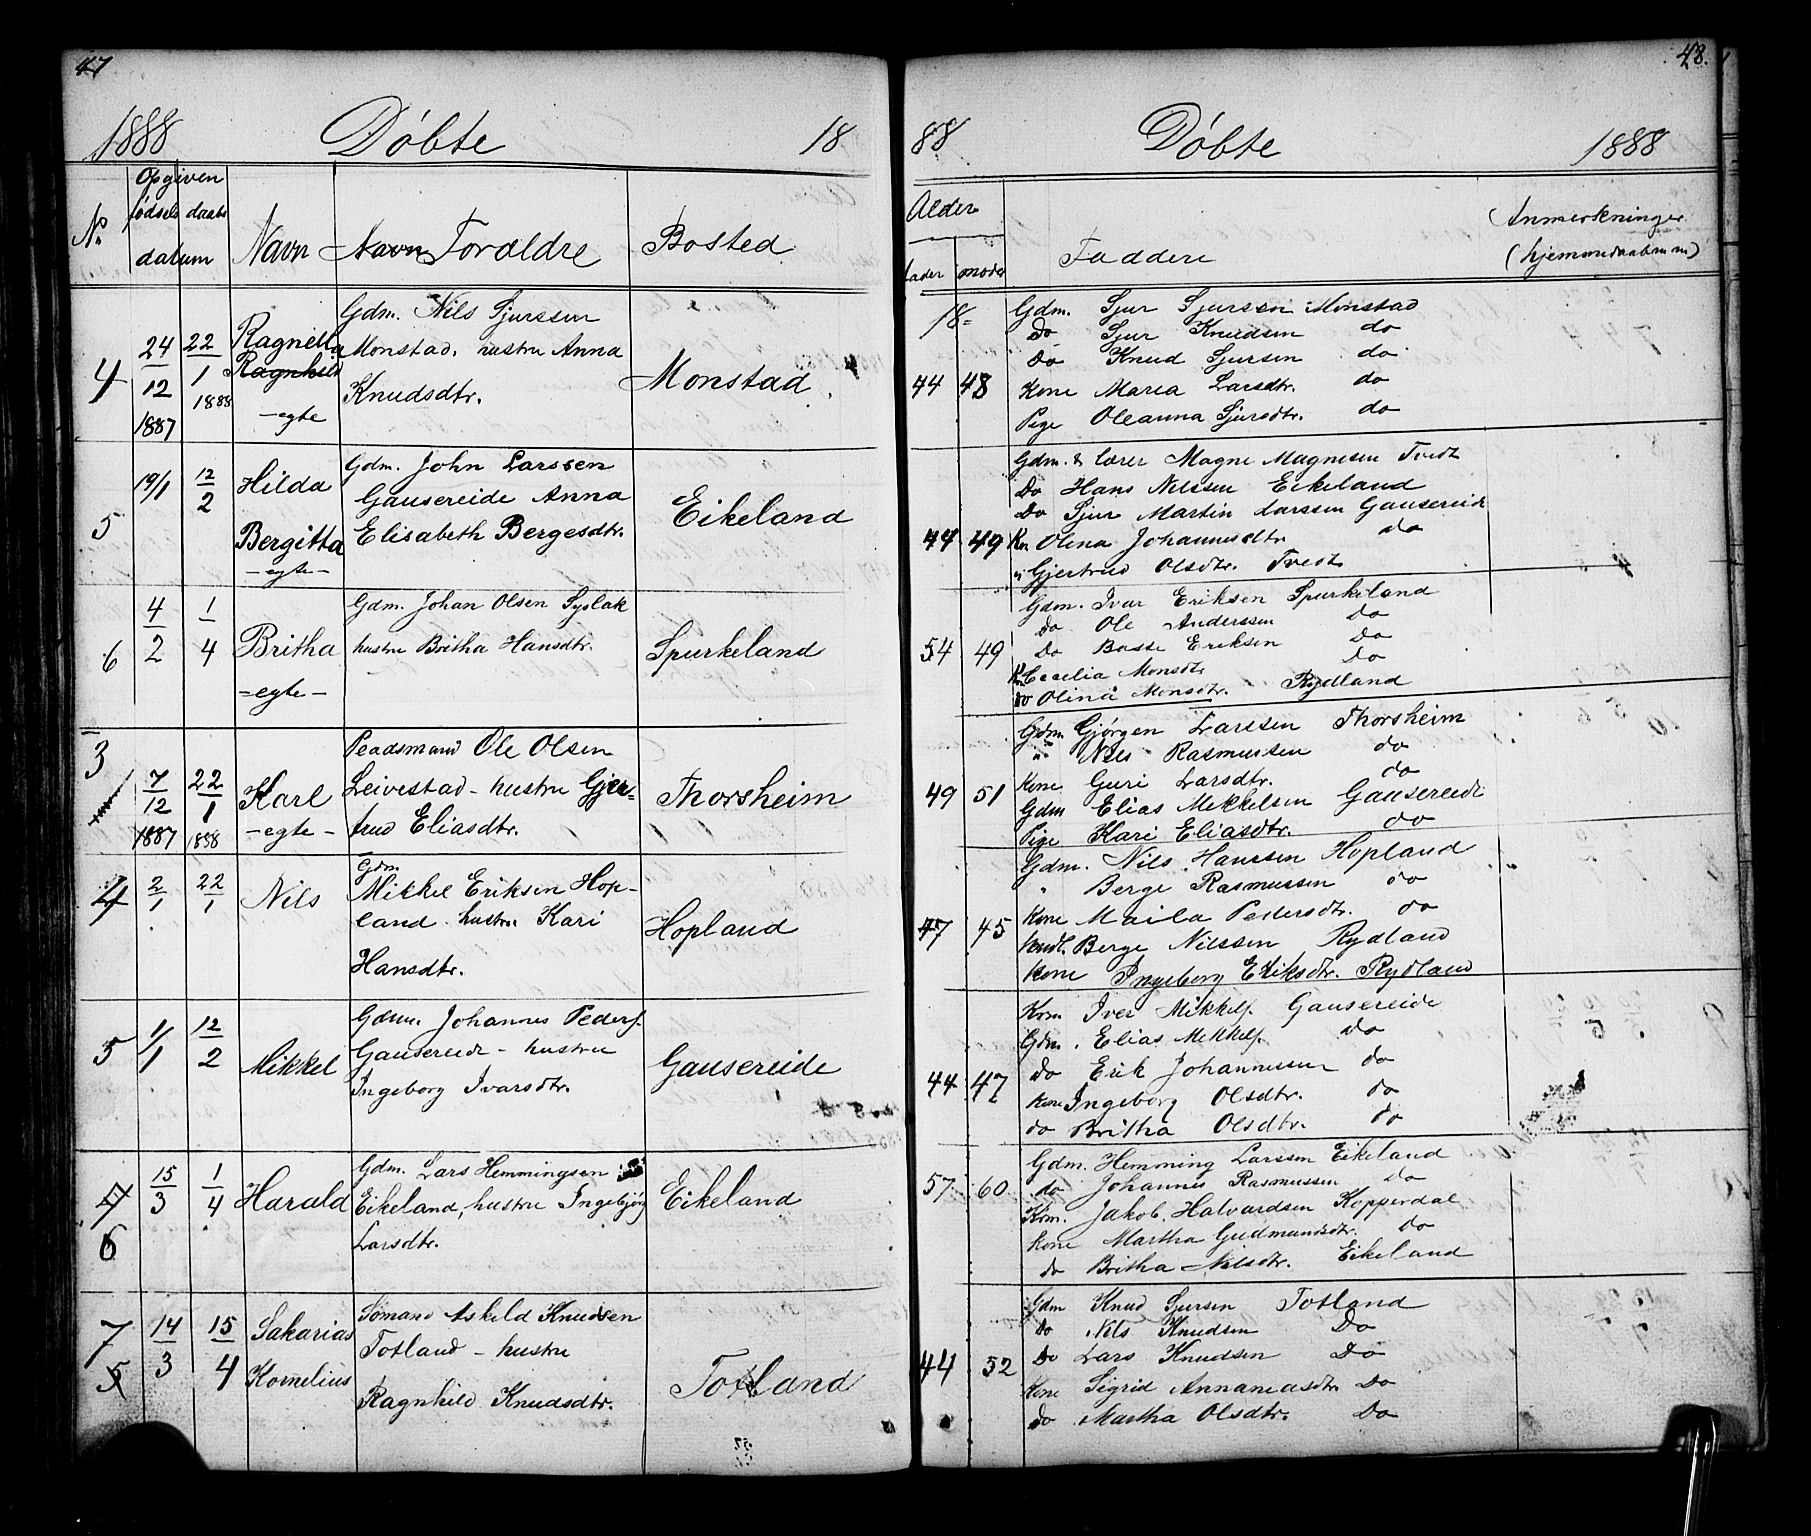 47
1888 Döbte 18
No. Opgiven fødsels daabs datum Navn Forældre Bosted
4 24/12 1887 22/1 1888 Ragnella Ragnhild -egte Gdm. Nils Sjurssen
Monstad. hustru Anna
Knudsdtr. Monstad
5 19/1 12/2 Hilda Bergitta -egte- Gdm. John Larssen
Gausereide Anna
Elisabeth Bergesdtr. Eikeland
6 4/2 1/4 Britha -egte- Gdm. Johan Olsen Syslak
hustru Britha Hansdtr. Spurkeland
3 7/12 1887 22/1 1888 Karl -egte- Ole Olsen
Leivestad - hustru Gjer-
trud Eliasdtr. Thorsheim
4 2/1 22/1 Nils Gdm.
Mikkel Eriksen Hop-
land hustru Kari
Hansdtr. Hopland
5 1/1 12/2 Mikkel Gdm. Johannes Peders.
Gausereide - hustru
Ingeborg Ivarsdtr. Gausereide
6 15/3 1/4 Harald Gdm. Lars Hemmingsen
Eikeland, hustru Ingebjörg
Larsdtr. Eikeland
7 5 14/3 15/4 Sakarias Kornelius Sömand Askild Knudsen
Totland - hustru
Ragnhild Knudsdtr. Totland
48.
88 Döbte 1888
Alder
fader moder Faddere Anmerkninger
(hjemmedaab m m)
18-
44 48
Gdm. Sjur Sjurssen Monstad
Do Sjur Knudsen do
Do Knud Sjursen do
Kone Maria Larsdtr. do
Pige Oleanna Sjursdtr. do
44 49
Gdm. & lærer Magne Magnesen Tvedt
Do Hans Nilssen Eikeland
Do Sjur Martin Larssen Gausereide
Kn. Olina Johannesdtr do
" Gjertrud Olsdtr. Tvedt
54 49
Gdm. Ivar Eriksen Spurkeland
do Ole Anderssen Do
Do Basse Eriksen Do
Kn Cecilia Monsdtr Do
do Olina Monsdtr. Rydland
49 51
Gdm. Gjørgen Larssen Thorsheim
" Nils Rasmussen do
Kone Guri Larsdtr. do
Gdm Elias Mikkelsen Gausereide
Pige Kari Eliasdtr. do
47 45
Gdm. Nils Hanssen Hopland
" Berge Rasmussen do
Kone Maila Pedersdtr. do
Berge Nilssen Rydland
Kone Ingeborg Eriksdtr. Rydland
44 47
Kom. Iver Mikkels. Gausereide
Gdm. Elias Mikkels. Do
Do Erik Johannessen do
Kone Ingeborg Olsdtr. do
do Britha Olsdtr. do
57 60
Gdm. Hemming Larssen Eikeland
do Johannes Rasmussen do
Kom. Jakob Halvardsen Kopperdal
Kone Martha Gudmundsdtr. do
do Britha Nilsdtr. Eikeland
44 52
Gdm Knud Sjursen Totland
Do Nils Knudsen Do
Do Lars Knudsen Do
Kone Sigrid Annaniasdtr Do
Do Martha Olsdtr. Do